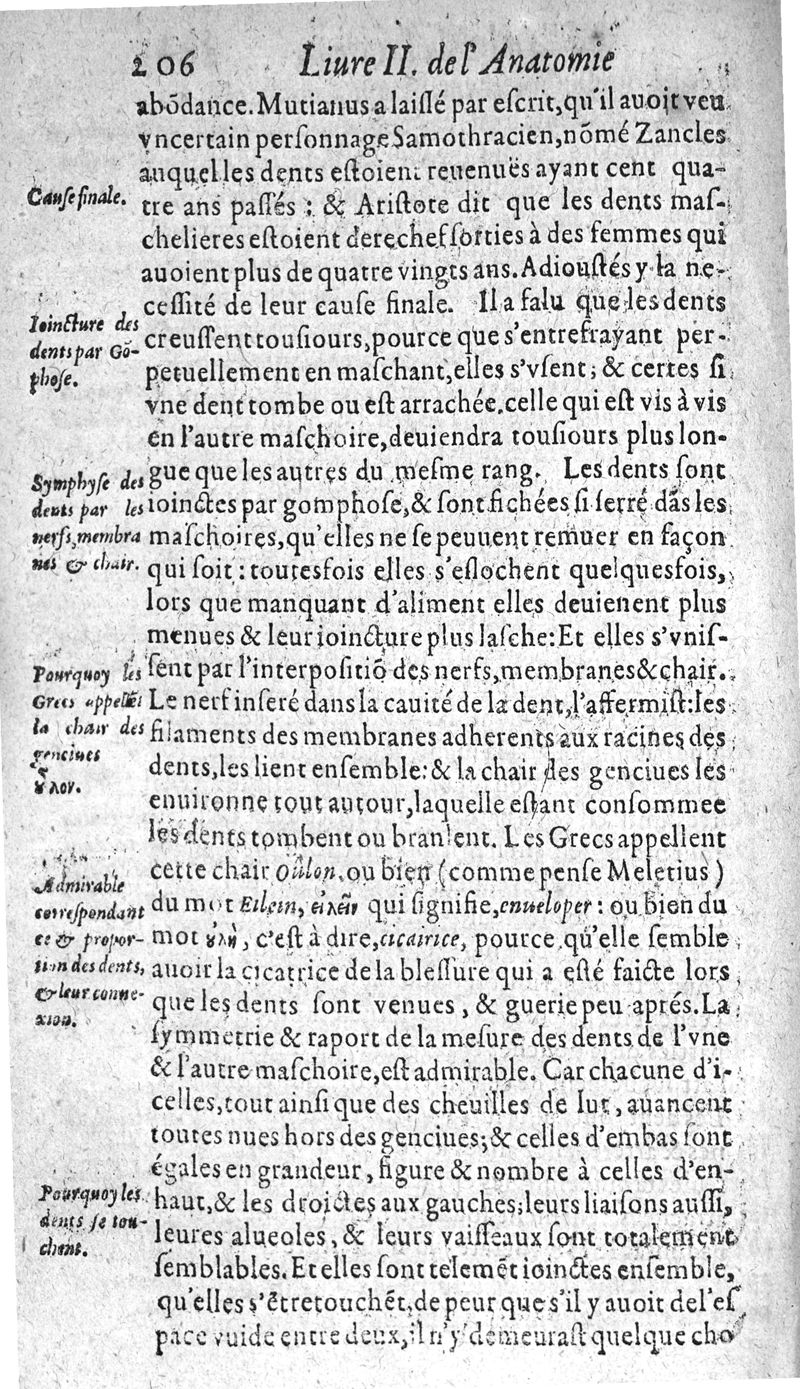 206 Liure II. de l'Anatomie
abōdance. Mutianus a laiſſé par eſcrit, qu'il auoit veu
vn certain perſonnage Samothracien, nōmé Zancles
auquel les dents eſtoient reuenuës ayant cent qua-
tre ans paſſés : & Ariſtote dit que les dents maſ-
chelieres eſtoient derechef ſorties à des femmes qui
auoient plus de quatre vingts ans. Adiouſtés y la ne-
ceſſité de leur cauſe finale. Il a falu que les dents
creuſſent touſiours, pource que s'entrefrayant per-
petuellement en maſchant, elles s'vſent; & certes ſi
vne dent tombe ou eſt arrachée, celle qui eſt vis à vis
en l'autre maſchoire, deuiendra touſiours plus lon-
gue que les autres du meſme rang. Les dents ſont
ioinctes par gomphoſe, & ſont fichées ſi ſerré dās les
maſchoires, qu'elles ne ſe peuuent remuer en façon
qui ſoit : toutesfois elles s'eſlochent quelquesfois,
lors que manquant d'aliment elles deuienent plus
menues & leur ioincture plus laſche: Et elles s'vniſ-
ſent par l'interpoſitiō des nerfs, membranes & chair.
Le nerf inſeré dans la cauité de la dent, l'affermiſt: les
filaments des membranes adherents aux racines des
dents, les lient enſemble: & la chair des genciues les
enuironne tout autour, laquelle eſtant conſommee
les dents tombent ou branlent. Les Grecs appellent
cette chair oûlon, ou bien (comme penſe Meletius)
du mot Eilein, εἰλεῖν qui ſignifie, enueloper : ou bien du
mot ȣ̓λὴ, c'eſt à dire, cicatrice, pource qu'elle ſemble
auoir la cicatrice de la bleſſure qui a eſté faicte lors
que les dents ſont venues, & guerie peu aprés. La
ſymmetrie & raport de la meſure des dents de l'vne
& l'autre maſchoire, eſt admirable. Car chacune d'i-
celles, tout ainſi que des cheuilles de lut, auancent
toutes nues hors des genciues; & celles d'embas ſont
égales en grandeur, figure & nombre à celles d'en-
haut, & les droictes aux gauches; leurs liaiſons auſſi,
leures alueoles, & leurs vaiſſeaux ſont totalement
ſemblables. Et elles ſont telemēt ioinctes enſemble,
qu'elles s'ētretouchēt, de peur que s'il y auoit de l'eſ
pace vuide entre deux, il n'y demeuraſt quelque cho
Cauſe finale.
Ioincture des
dents par Gō-
phoſe.
Symphyſe des
dents par les
nerfs, membra
nes & chair.
Pourquoy les
Grecs appellēt
la chair des
genciues
ȣλον.
Admirable
correſpondant
ce & propor-
tion des dents,
& leur conne-
xion.
Pourquoy les
dents ſe tou-
chent.